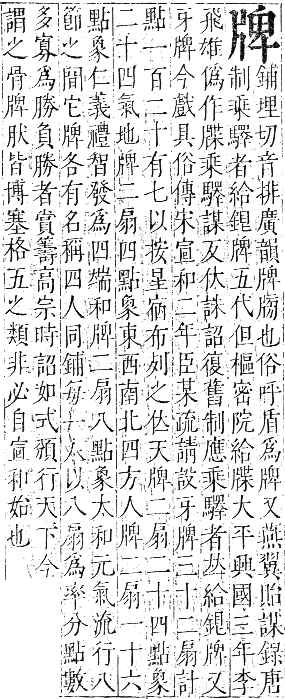 牌
鋪埋切音排廣韻牌牓也俗呼盾爲牌又燕翼貽謀錄唐
制乘驛者給銀牌五代但樞密院給牒大平興國三年李
飛雄僞作牒乘驛謀叉伏誅詔復舊制應乘驛者𠀤給銀牌又
牙牌今戲具俗傳宋宣和二年臣某疏請設牙牌三十二扇計
點一百二十有七以按星宿布列之位天牌二扇二十四點象
二十四氣地牌二扇四點象東西南北四方人牌二扇一十六
點象仁義禮智發爲四端和牌二扇八點象太和元氣流行八
節之間它牌各有名稱四人同鋪每人以八扇爲率分點數
多寡爲勝負勝者賞籌高宗時詔如式頒行天下今
謂之骨牌肰皆博塞格五之類非必自宣和始也